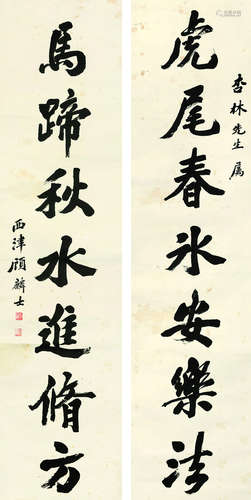 杏林先生属
虎尾春冰安樂法
馬蹄秋水進脩方
西津顾麟士